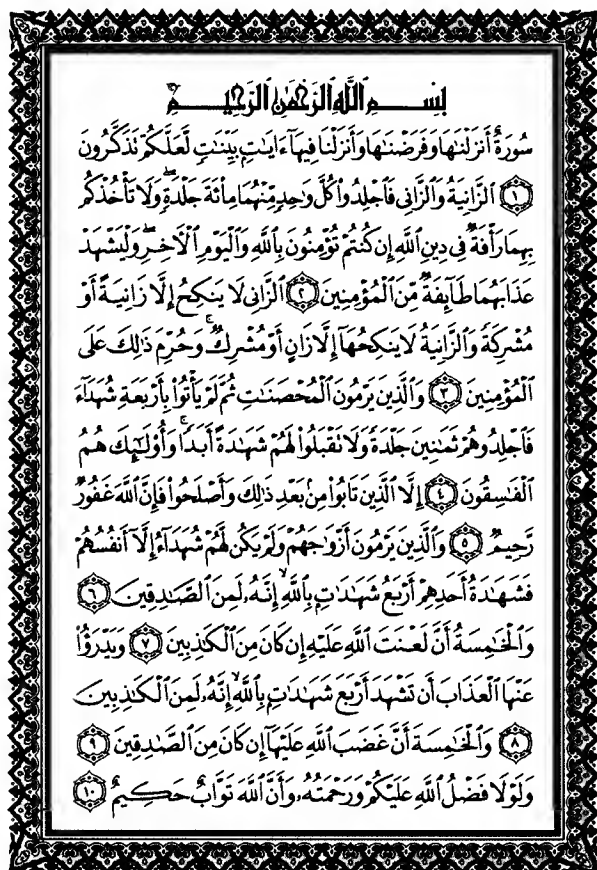 بِسْمِ ٱللَّهِ ٱلرَّحْمَٰنِ ٱلرَّحِيمِ
سُورَةٌ أَنزَلْنَٰهَا وَفَرَضْنَٰهَا وَأَنزَلْنَا فِيهَآ ءَايَٰتٍۭ بَيِّنَٰتٍ لَّعَلَّكُمْ تَذَكَّرُونَ
١ ٱلزَّانِيَةُ وَٱلزَّانِى فَٱجْلِدُوا۟ كُلَّ وَٰحِدٍ مِّنْهُمَا مِا۟ئَةَ جَلْدَةٍ ۖ وَلَا تَأْخُذْكُم
بِهِمَا رَأْفَةٌ فِى دِينِ ٱللَّهِ إِن كُنتُمْ تُؤْمِنُونَ بِٱللَّهِ وَٱلْيَوْمِ ٱلْءَاخِرِ ۖ وَلْيَشْهَدْ
عَذَابَهُمَا طَآئِفَةٌ مِّنَ ٱلْمُؤْمِنِينَ ٢ ٱلزَّانِى لَا يَنكِحُ إِلَّا زَانِيَةً أَوْ
مُشْرِكَةً وَٱلزَّانِيَةُ لَا يَنكِحُهَآ إِلَّا زَانٍ أَوْ مُشْرِكٌ ۚ وَحُرِّمَ ذَٰلِكَ عَلَى
ٱلْمُؤْمِنِينَ ٣ وَٱلَّذِينَ يَرْمُونَ ٱلْمُحْصَنَٰتِ ثُمَّ لَمْ يَأْتُوا۟ بِأَرْبَعَةِ شُهَدَآءَ
فَٱجْلِدُوهُمْ ثَمَٰنِينَ جَلْدَةً وَلَا تَقْبَلُوا۟ لَهُمْ شَهَٰدَةً أَبَدًا ۚ وَأُو۟لَٰٓئِكَ هُمُ
ٱلْفَٰسِقُونَ ٤ إِلَّا ٱلَّذِينَ تَابُوا۟ مِنۢ بَعْدِ ذَٰلِكَ وَأَصْلَحُوا۟ فَإِنَّ ٱللَّهَ غَفُورٌ
رَّحِيمٌ ٥ وَٱلَّذِينَ يَرْمُونَ أَزْوَٰجَهُمْ وَلَمْ يَكُن لَّهُمْ شُهَدَآءُ إِلَّآ أَنفُسُهُمْ
فَشَهَٰدَةُ أَحَدِهِمْ أَرْبَعُ شَهَٰدَٰتٍۭ بِٱللَّهِ ۙ إِنَّهُۥ لَمِنَ ٱلصَّٰدِقِينَ ٦
وَٱلْخَٰمِسَةُ أَنَّ لَعْنَتَ ٱللَّهِ عَلَيْهِ إِن كَانَ مِنَ ٱلْكَٰذِبِينَ ٧ وَيَدْرَؤُا۟
عَنْهَا ٱلْعَذَابَ أَن تَشْهَدَ أَرْبَعَ شَهَٰدَٰتٍۭ بِٱللَّهِ ۙ إِنَّهُۥ لَمِنَ ٱلْكَٰذِبِينَ
٨ وَٱلْخَٰمِسَةَ أَنَّ غَضَبَ ٱللَّهِ عَلَيْهَآ إِن كَانَ مِنَ ٱلصَّٰدِقِينَ ٩
وَلَوْلَا فَضْلُ ٱللَّهِ عَلَيْكُمْ وَرَحْمَتُهُۥ وَأَنَّ ٱللَّهَ تَوَّابٌ حَكِيمٌ ١٠